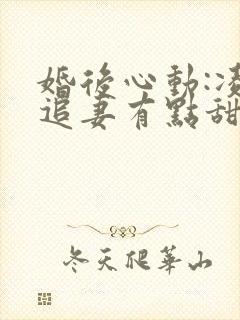 婚後心動:凌
追妻有點甜
冬天爬華山